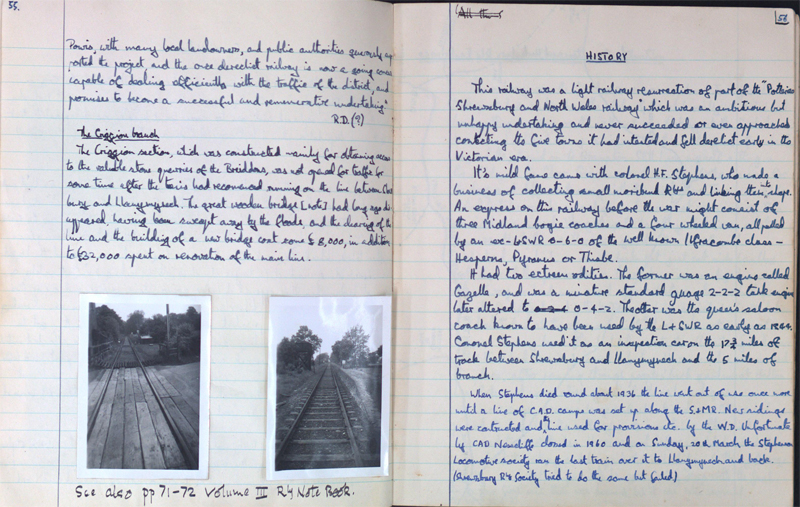 55.
Powis, with many local landowners, and public authorities generously
ported the project and the once derelict railway is now a going
capable of dealing efficiently with the traffic of the district, and
promises to become a successful and remunerative undertaking"
R.D. (9)
The Criggion branch
The Criggion section, which was constructed mainly for obtaining access
to the valuable stone quarries of the Breiddens, was not opened for traffic for
some time after the trains had recommenced running on the line between
bury and Llanymynech. The great wooden bridge had long ago
appeared, having been swept away by the floods, and the clearing of the
line and the building of a new bridge cost some £8,000, in addition
to £32,000 spent on renovation of the main line.
See also pp 71-72 Volume III Rly Note Book.
56
HISTORY
This railway was a light railway resurrection of part of the "Potteries
Shrewsbury and North Wales railway" which was an ambitious but
unhappy undertaking and never succeeded or even approached
contacting the five towns it had intended and fell derelict early in the
Victorian era.
It's mild fame came with colonel H.F. Stephens, who made a
business of collecting small moribund Rlys and linking them shape.
An express on this railway before the war might consist of
three Midland bogie coaches and a four wheeled van, all pulled
by an ex-LSWR 0-6-0 of the well known Ilfracombe class -
Hesperus, Pyramus or Thisbe.
It had two extreem oddities. The former was an engine called
Gazelle, and was a minature standard guage 2-2-2 tank engine
later altered to 0-4-2. The other was the queen's saloon
coach known to have been used by the L&SWR as early as 1844.
Coronel Stephens used it as an inspection car on the 17¾ miles of
track between Shrewsbury and Llanymynech and the 5 miles of
branch.
When Stephens died round about 1936 the line went out of use once more
until a line of C.A.D. camps was set up along the S&MR. New sidings
were contructed and line used for provisions etc. by the W.D. Unfortunate
ly CAD Nescliffe closed in 1960 and on Sunday, 20th March the Stephenson
Locomotive society ran the last train over it to Llanymynech and back.
(Shrewsbury Rly Society tried to do the same but failed)